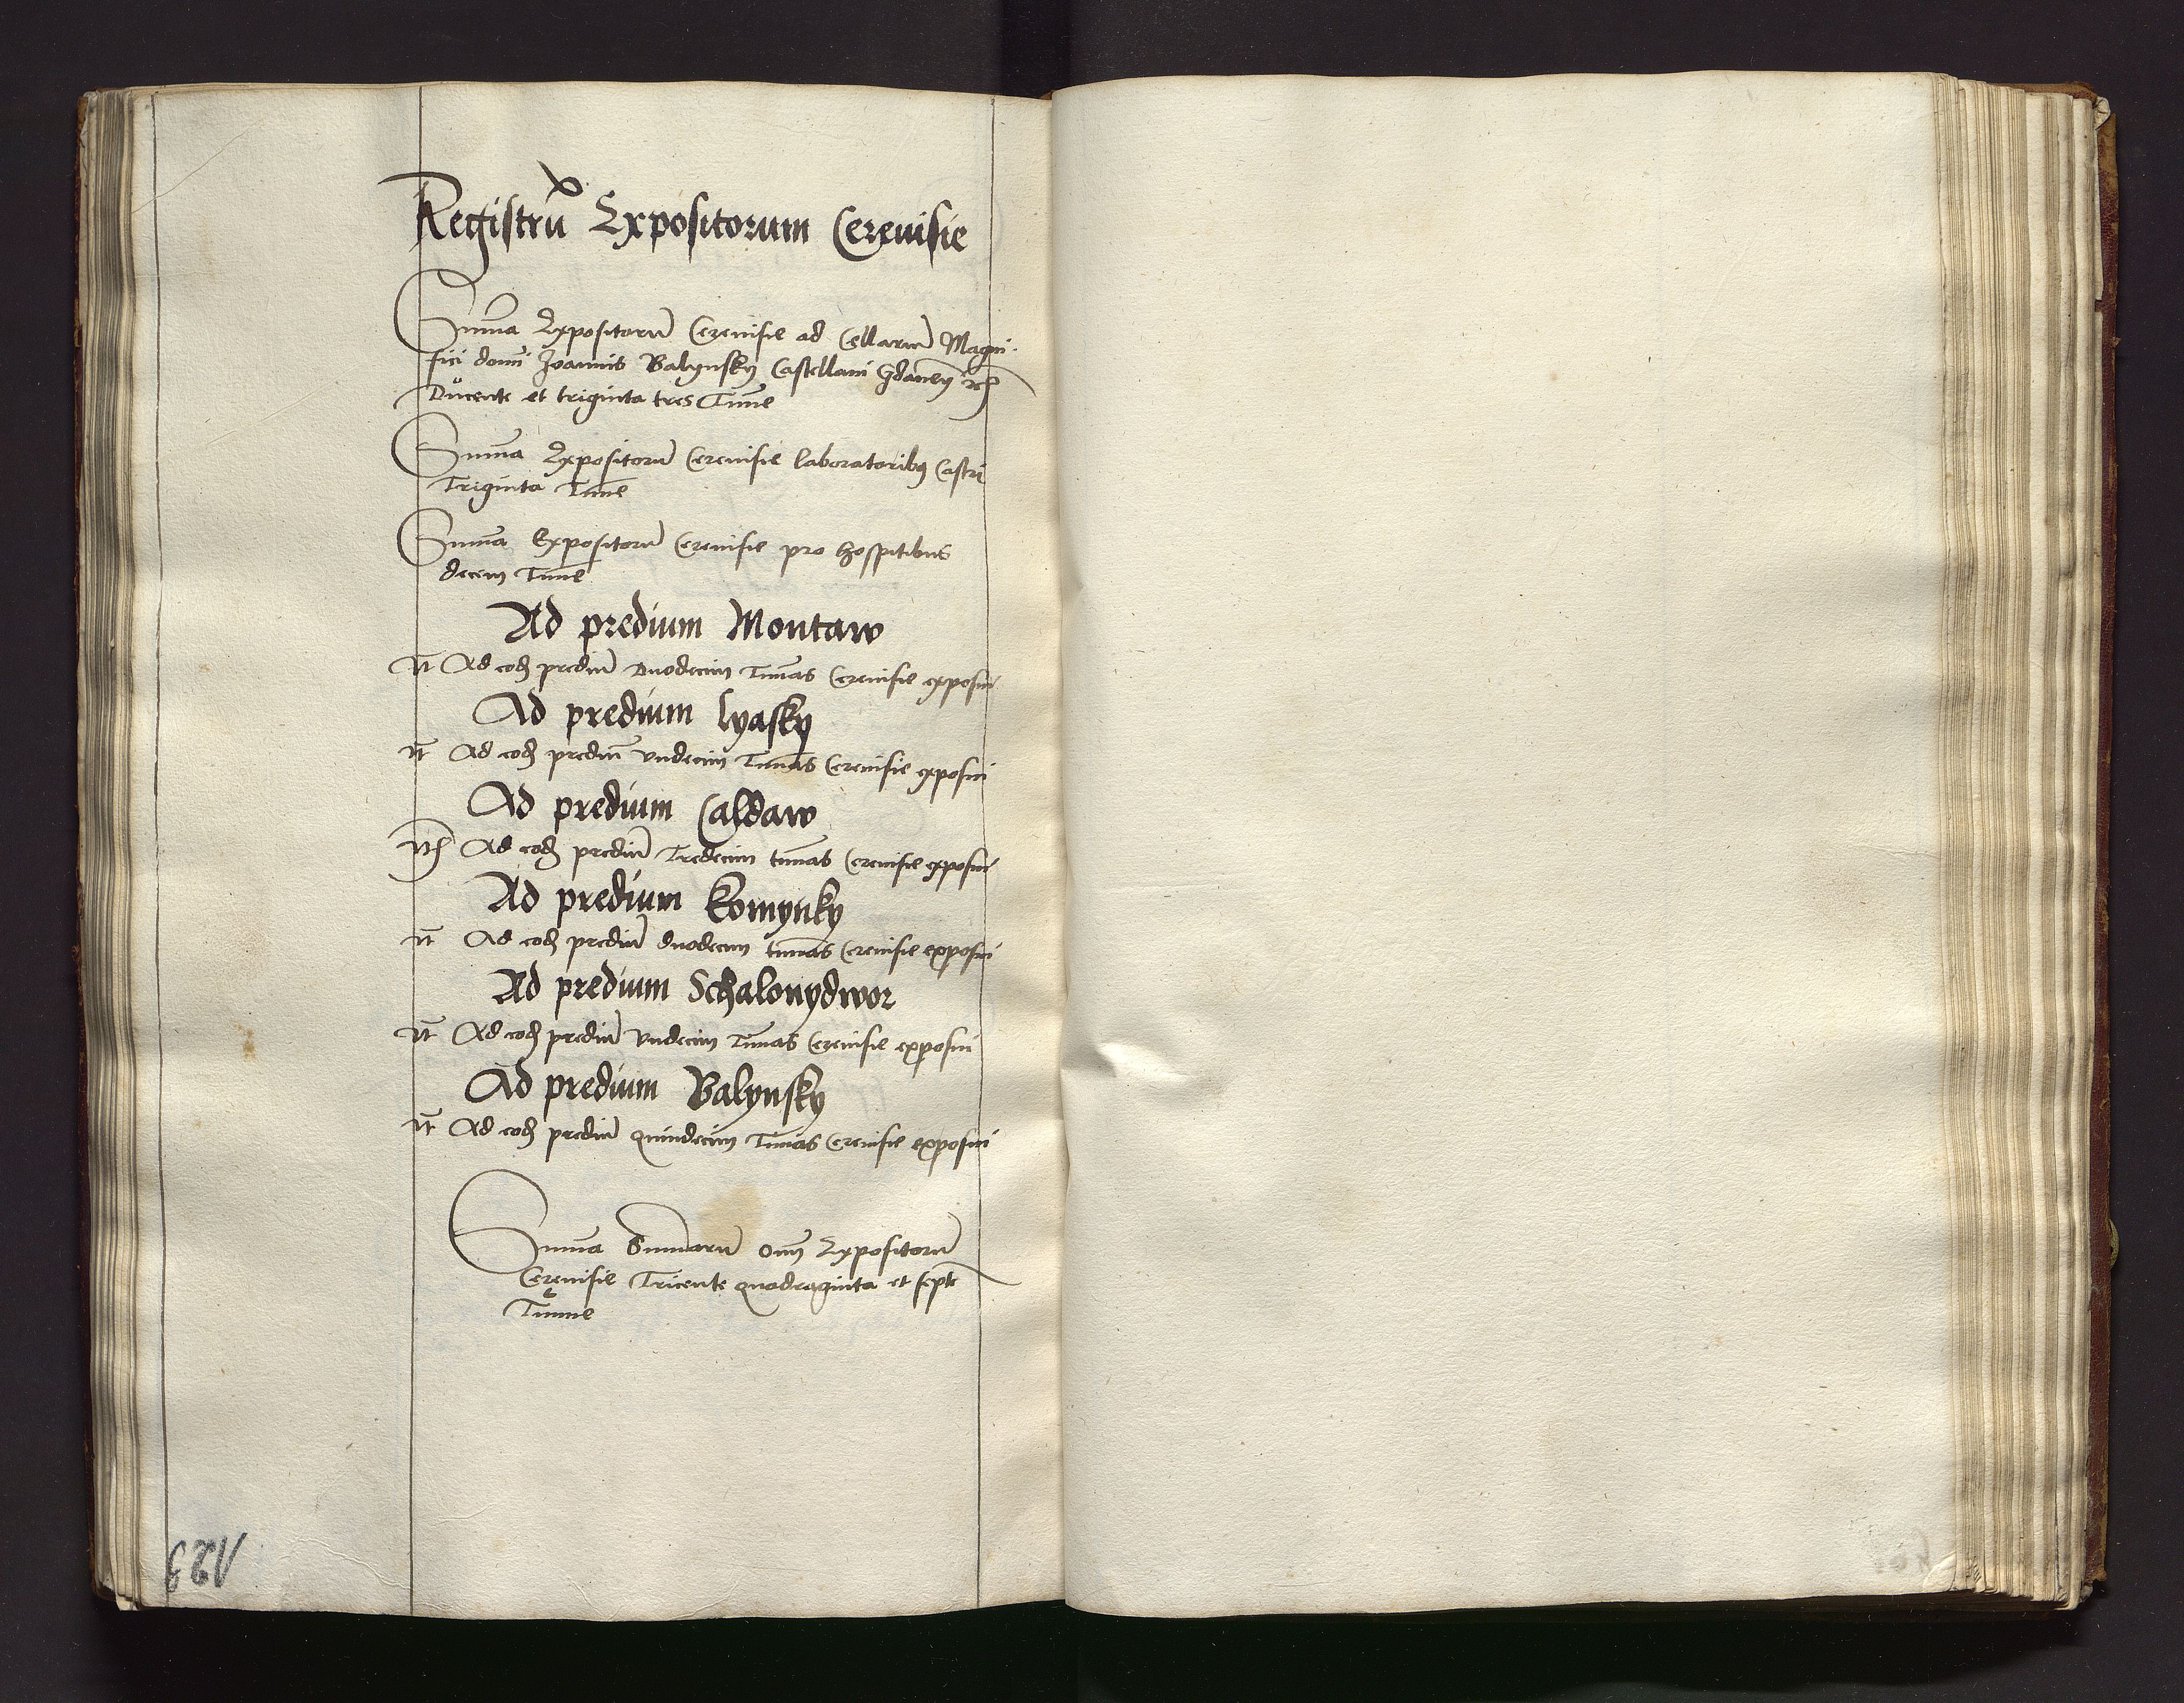 Registrū Expositorum Cereuisie
Suma Expositorū Cereuisie ad Cellariū Magni-
fici domī Joannis Balynsky Castellani Gdaneñ
Ducente et triginta tres Tunne
Suma Expositorū Cereuisie laboratoribus Castri
Triginta Tunne
Suma Expositorū Cereuisie pro hospitibus
decem Tunne
Ad predium Montaw
It Ad eod prediū Duodecim Tunas Cereuisie exposui
Ad predium lyasky
It Ad eod prediū vndecim Tunas Cereuisie exposui
Ad predium Caldaw
It Ad eod prediū Tredecim tunas Cereuisie exposui
Ad predium Komynky
It Ad eod prediū duodecim tunas Cereuisie exposui
Ad predium Schalonydwor
It Ad eod prediū Vndecim Tunas Cereuisie exposui
Ad predium Balynsky
It Ad eod prediū quindecim Tunas Cereuisie exposui
Suma Sumarū oīm Expositorū
Cereuisie Tricente quadraginta et septē
Tunne
123